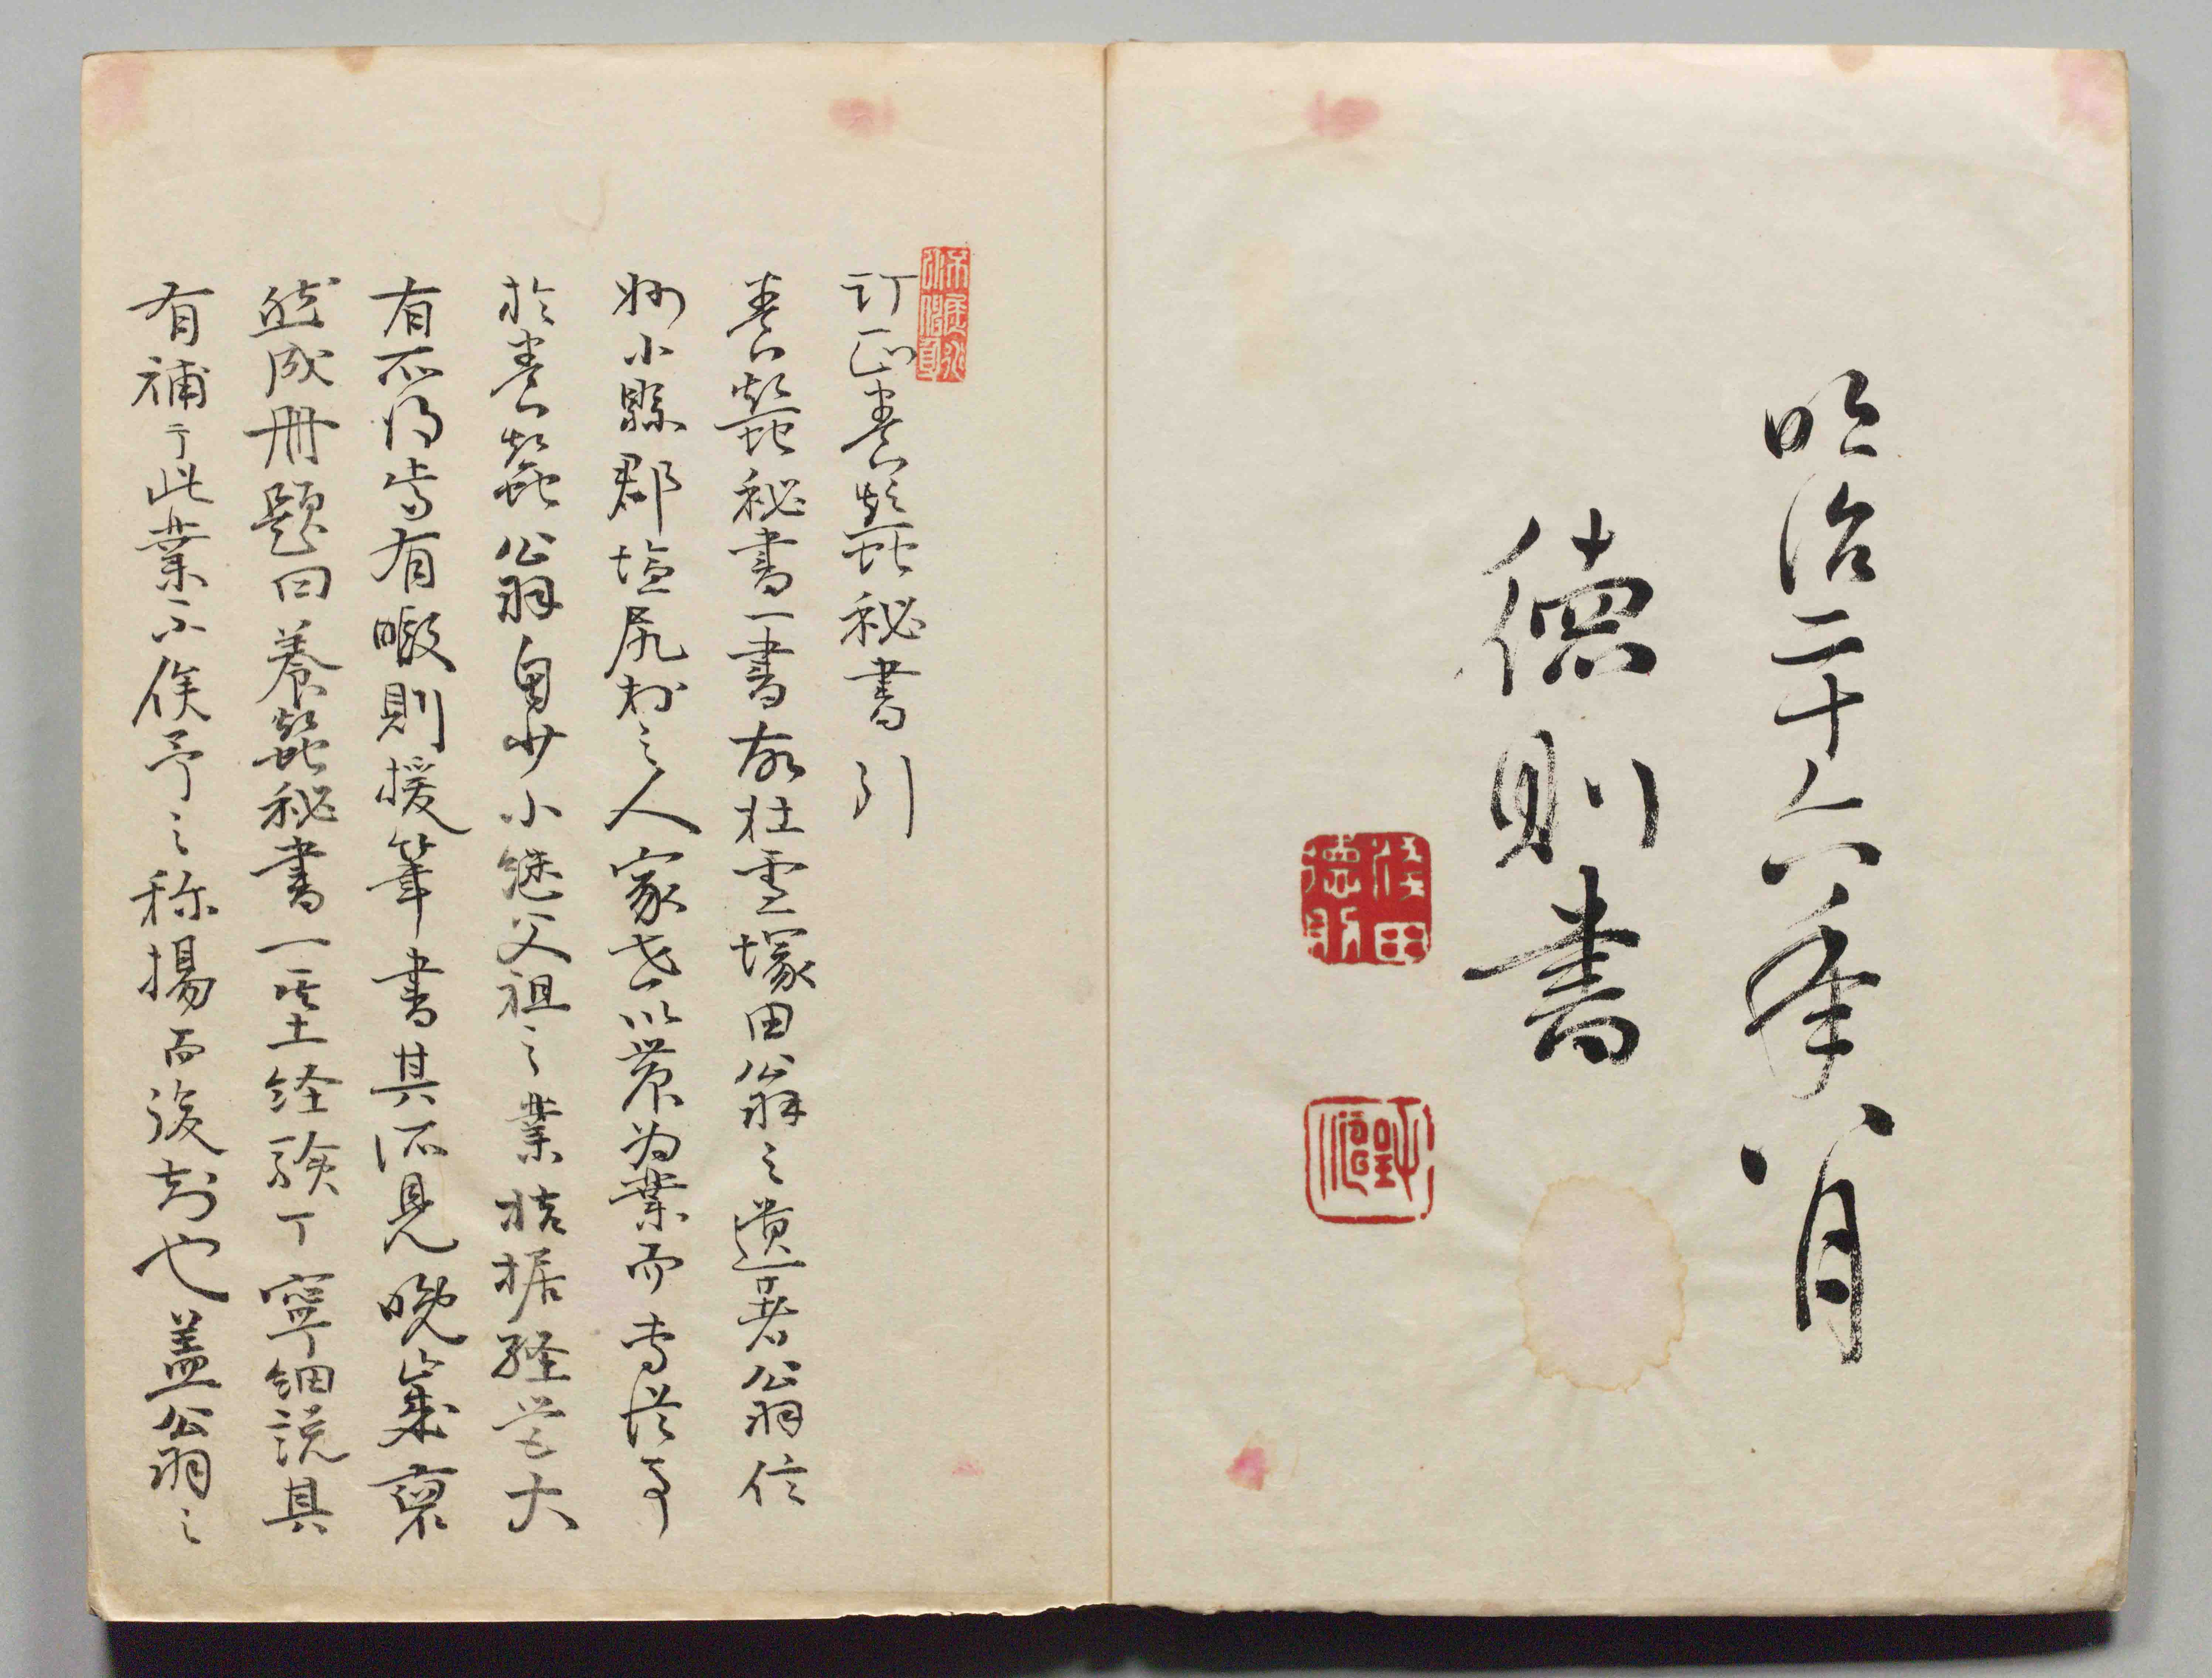 明治二十六年八月
德則書
訂正養蠶秘書引
養蠶秘書一書故杜雲塚田翁之遺著翁信
州小縣郡塩尻村之人家世以農為業而専従事
於養蠶翁自少小継父祖之業拮据経営大
有所得焉有暇則援筆書其所見晩歳裒
然成册題曰養蠶秘書一隆土经験丁寧細説其
有補于此業不俟予之称揚而後知也蓋翁之